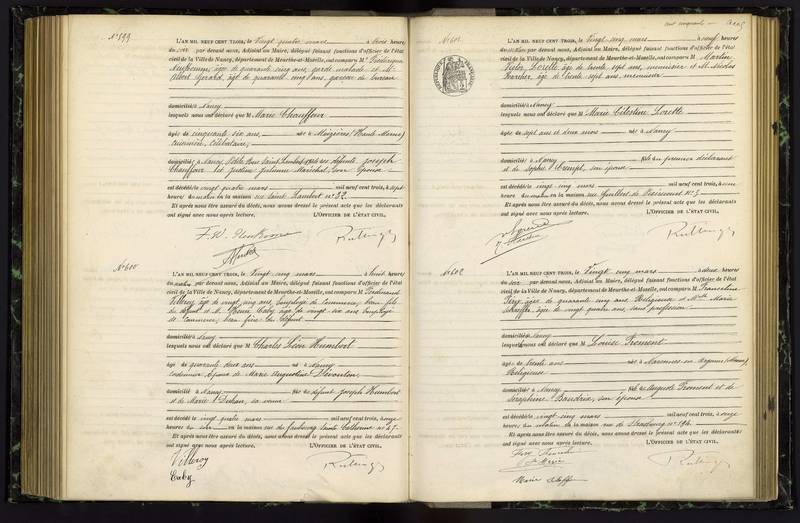 N° 599
L'AN MIL NEUF CENT TROIS, le vingt quatre mars à trois heures
du soir par devant nous, Adjoint au Maire, délégué faisant fonctions d'officier de l'état
civil de la Ville de Nancy, département de Meurthe-et-Moselle, ont comparu M.
âgé de quarante cinq ans, garde malade et M.
Albert Gérard, âgé de quarante cinq ans, garçon de bureau
domiciliés à Nancy
lesquels nous ont déclaré que M Marie Chauffour
âgée de cinquante six ans, née à (Haute Marne)
cuisinière, célibataire,
domiciliée à Nancy, fille de défunts Joseph
Chauffour et Justine Julienne Maréchal, son épouse
est décédée le vingt quatre mars mil neuf cent trois, à sept
heures du matin en la maison rue Saint Lambert n° 32.
Et après nous être assuré du décès, nous avons dressé le présent acte que les déclarants
ont signé avec nous après lecture. L'OFFICIER DE L'ÉTAT CIVIL,
N° 600
L'AN MIL NEUF CENT TROIS, le vingt cinq mars à huit heures
du matin par devant nous, Adjoint au Maire, délégué faisant fonctions d'officier de l'état
civil de la Ville de Nancy, département de Meurthe-et-Moselle, ont comparu M. Ferdinand
Villeroy, âgé de vingt cinq ans, employé de commerce, beau fils
du défunt et M. Henri Caby âgé de vingt six ans employé
de commerce, beau frère du défunt
domiciliés à Nancy
lesquels nous ont déclaré que M Charles Léon Humbert
âgé de quarante deux ans né à Nancy
cordonnier, époux de Marie Augustine
domicilié à Nancy fils de défunt Joseph Humbert
et de Marie sa veuve
est décédé le vingt quatre mars mil neuf cent trois, à onze
heures du soir en la maison rue du faubourg Sainte Catherine n° 47.
Et après nous être assuré du décès, nous avons dressé le présent acte que les déclarants
ont signé avec nous après lecture. L'OFFICIER DE L'ÉTAT CIVIL,
Villeroy
Caby
N° 601
L'AN MIL NEUF CENT TROIS, le vingt cinq mars à neuf heures
du matin par devant nous, Adjoint au Maire, délégué faisant fonctions d'officier de l'état
civil de la Ville de Nancy, département de Meurthe-et-Moselle, ont comparu M. Martin
Victor Lorette âgé de trente sept ans, menuisier et M. Nicolas
âgé de trente sept ans, menuisier
domiciliés à Nancy
lesquels nous ont déclaré que M Marie Célestine Lorette
âgée de sept ans et deux mois née à Nancy
domiciliée à Nancy fille du premier déclarant
et de Sophie son épouse
est décédée le vingt cinq mars mil neuf cent trois, à une
heure du matin en la maison rue Guilbert de Pixérécourt n° 5
Et après nous être assuré du décès, nous avons dressé le présent acte que les déclarants
ont signé avec nous après lecture. L'OFFICIER DE L'ÉTAT CIVIL,
N° 602
L'AN MIL NEUF CENT TROIS, le vingt cinq mars à deux heures
du soir par devant nous, Adjoint au Maire, délégué faisant fonctions d'officier de l'état
civil de la Ville de Nancy, département de Meurthe-et-Moselle, ont comparu M. Françoise
âgée de quarante cinq ans Religieuse et Mlle Marie
âgée de vingt quatre ans, sans profession
domiciliés à Nancy
lesquels nous ont déclaré que M Louise Froment
âgée de trente ans née à Varennes en Argonne (Meuse)
Religieuse
domiciliée à Nancy fille de Auguste Froment et de
Séraphine Baudria, son épouse
est décédée le vingt cinq mars mil neuf cent trois, à onze
heures du matin en la maison rue de Strasbourg n° 194
Et après nous être assuré du décès, nous avons dressé le présent acte que les déclarants
ont signé avec nous après lecture. L'OFFICIER DE L'ÉTAT CIVIL,